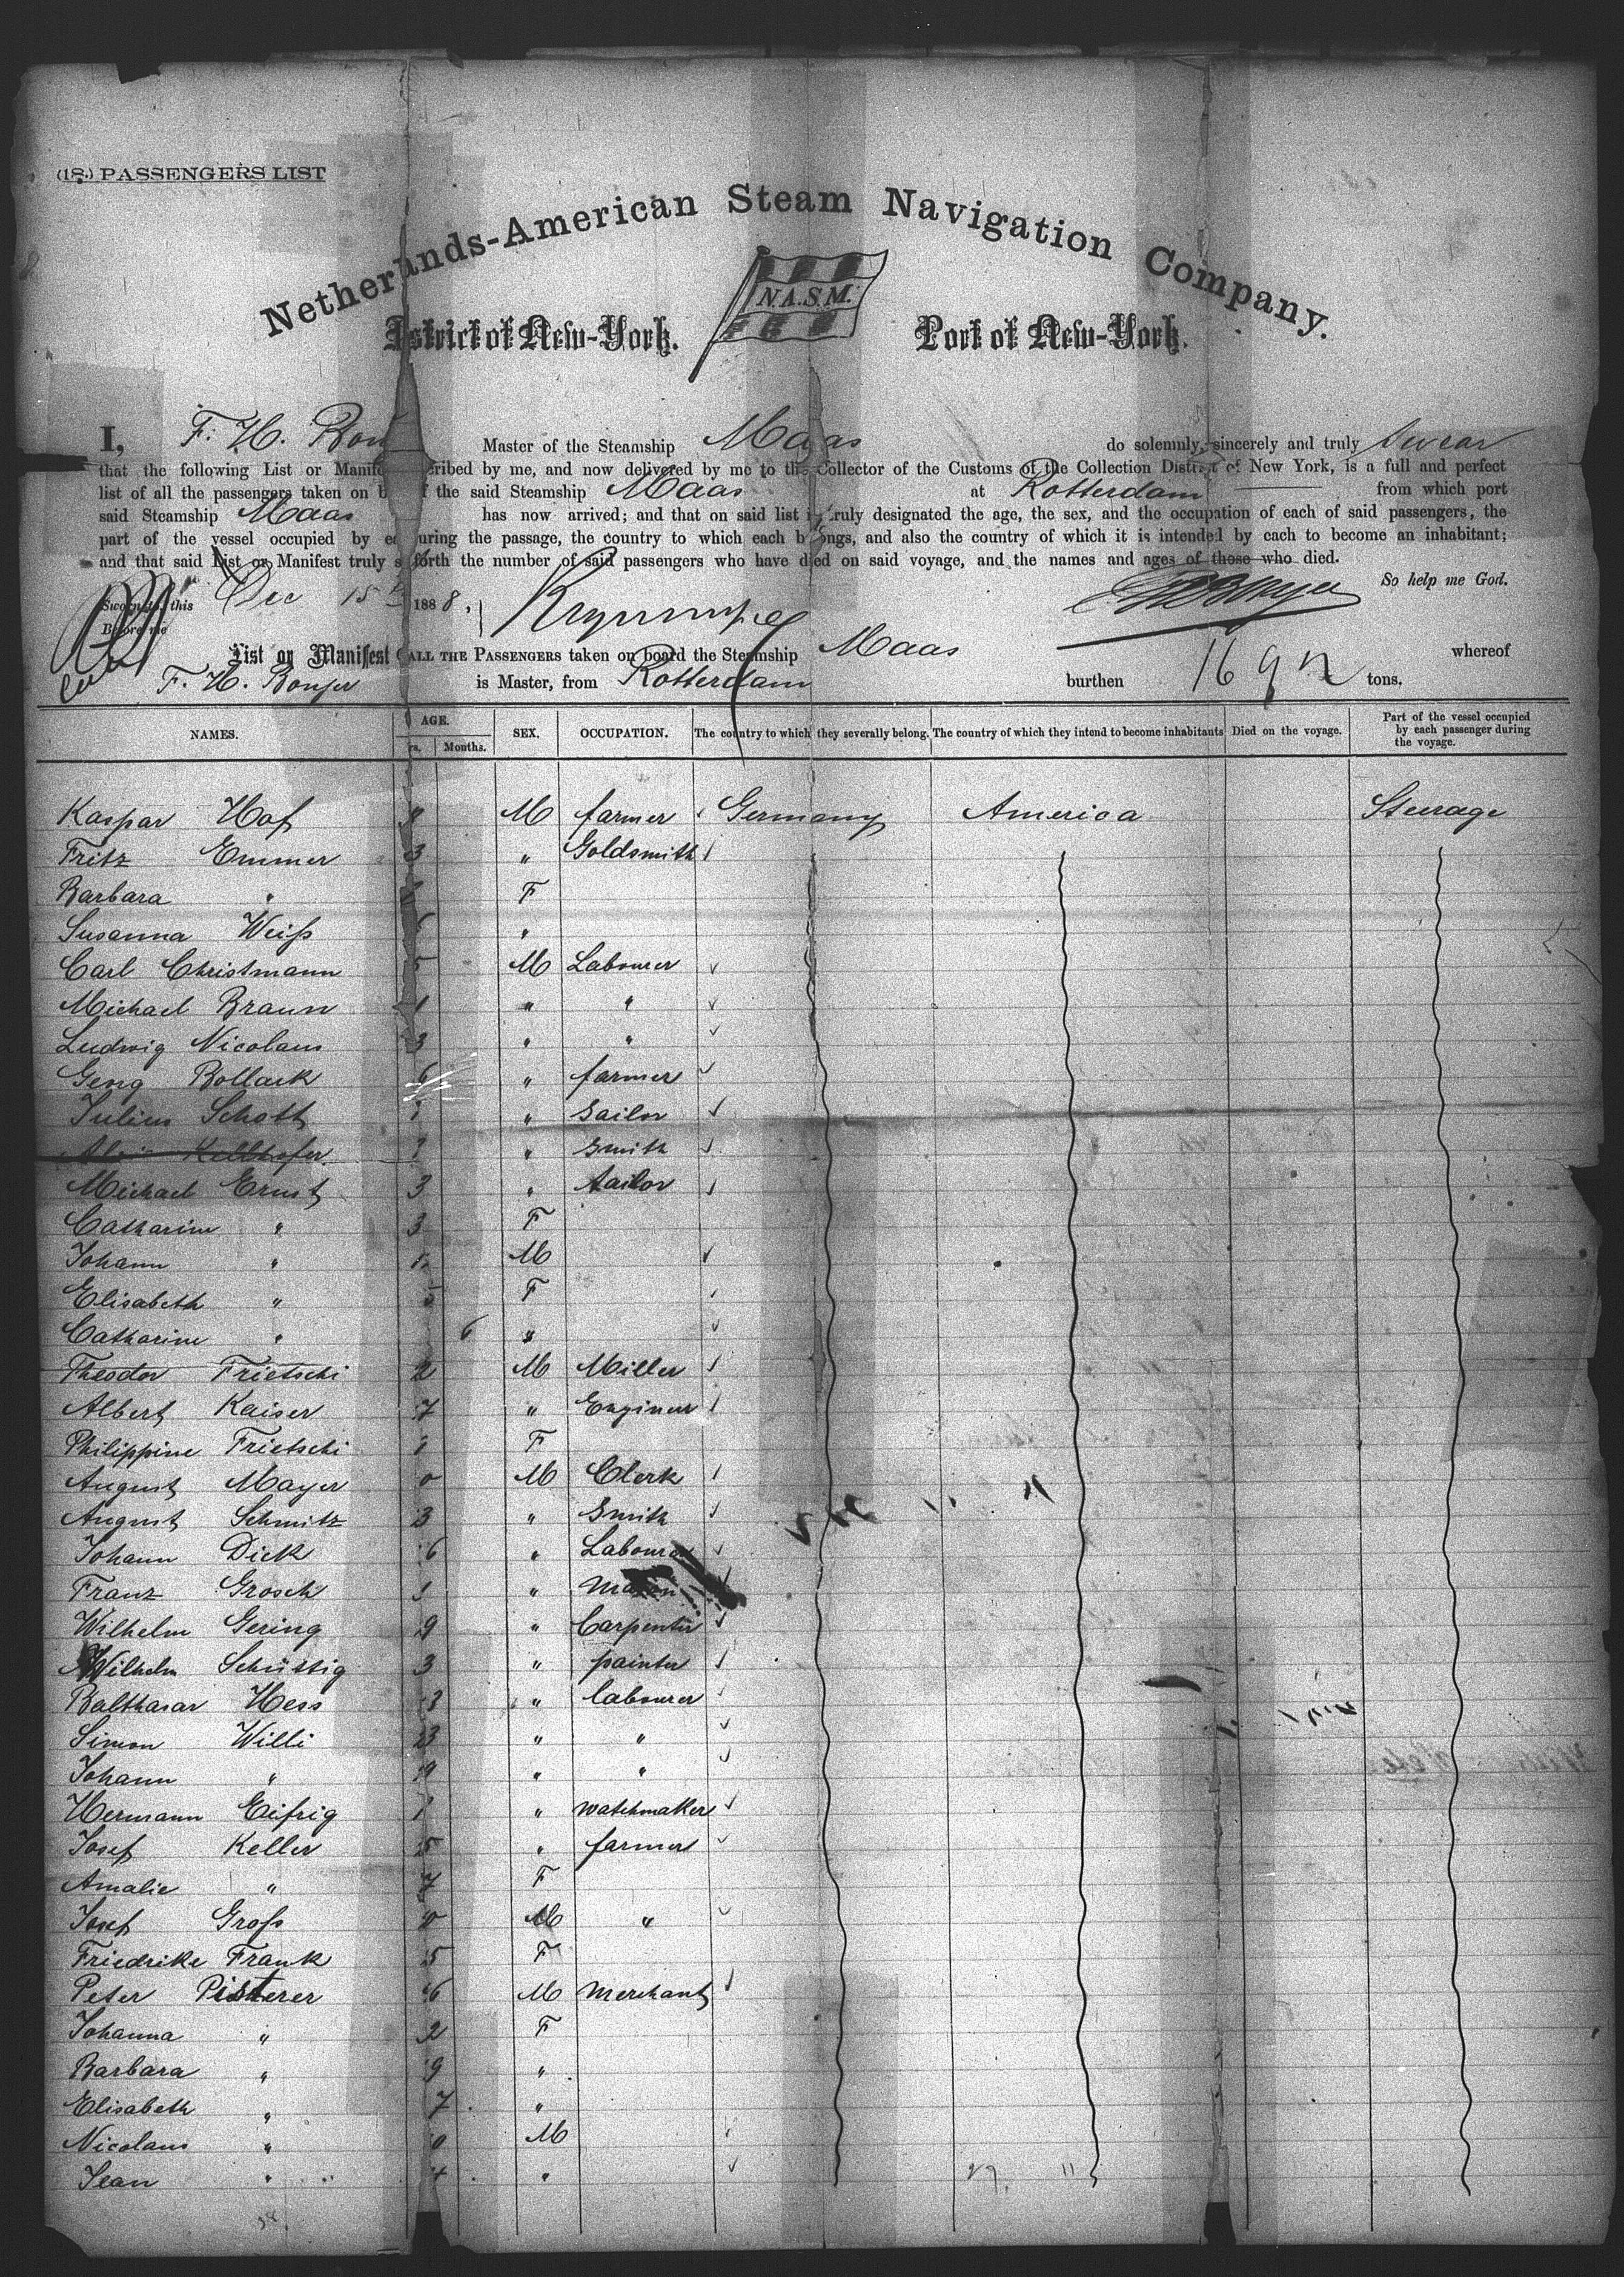 (18.) PASSENGERS LIST
Netherlands-American Steam Navigation Company.
N.A.S.M.
District of New-York. Port of New-York.
I, F. H. Bon Master of the Steamship Maas do solemnly, sincerely and truly swear
that the following List or Manife cribed by me, and now delivered by me to the Collector of the Customs of the Collection District of New York, is a full and perfect
list of all the passengers taken on b f the said Steamship Maas at Rotterdam from which port
said Steamship Maas has now arrived; and that on said list is truly designated the age, the sex, and the occupation of each of said passengers, the
part of the vessel occupied by ea uring the passage, the country to which each belongs, and also the country of which it is intended by each to become an inhabitant;
and that said List or Manifest truly s forth the number of said passengers who have died on said voyage, and the names and ages of those who died.
So help me God.
Sworn to, this Dec 15th 1888,
Before me
List or Manifest ALL THE PASSENGERS taken on board the Steamship Maas whereof
F. H. Bonjer is Master, from Rotterdam burthen tons.
NAMES. AGE. SEX. OCCUPATION. The country to which they severally belong. The country of which they intend to become inhabitants Died on the voyage. Part of the vessel occupied by each passenger during the voyage.
rs. Months.
Kaspar Hof M farmer Germany America Steerage
Fritz Emmer 3 " Goldsmith
Barbara " F
Susanna Weiß "
Carl Christmann 5 M Labourer
Michael Braun 1 " "
Ludwig Nicolaus 3 " "
Georg Bollack 6 " farmer
Julius Schott 1 " Sailor
" Smith
Michael Ernst 3 " tailor
Catharine " 3 F
Johann " M
Elisabeth " F
Catharine " 6 "
Theodor Frietschi 2 M Miller
Albert Kaiser 7 " Engineer
Philippine Frietschi F
August Mayer 0 M Clerk
August Schmitz 3 " Smith
Johann Dick 6 " Labourer
Franz Grosch 1 " Mason
Wilhelm Gering 9 " Carpenter
Wilhelm Schüttig 3 " painter
Balthasar Hess 3 " labourer
Simon Willi 23 " "
Johann " 19 " "
Hermann Eifrig 1 " watchmaker
Josef Keller 5 " farmer
Amalie " 7 F
Josef Groß 0 M "
Friedrike Frank 5 F
Peter Pisterer 6 M Merchant
Johanna " 2 F
Barbara " 9 "
Elisabeth " 7 "
Nicolaus " 0 M
Jean " 4 "